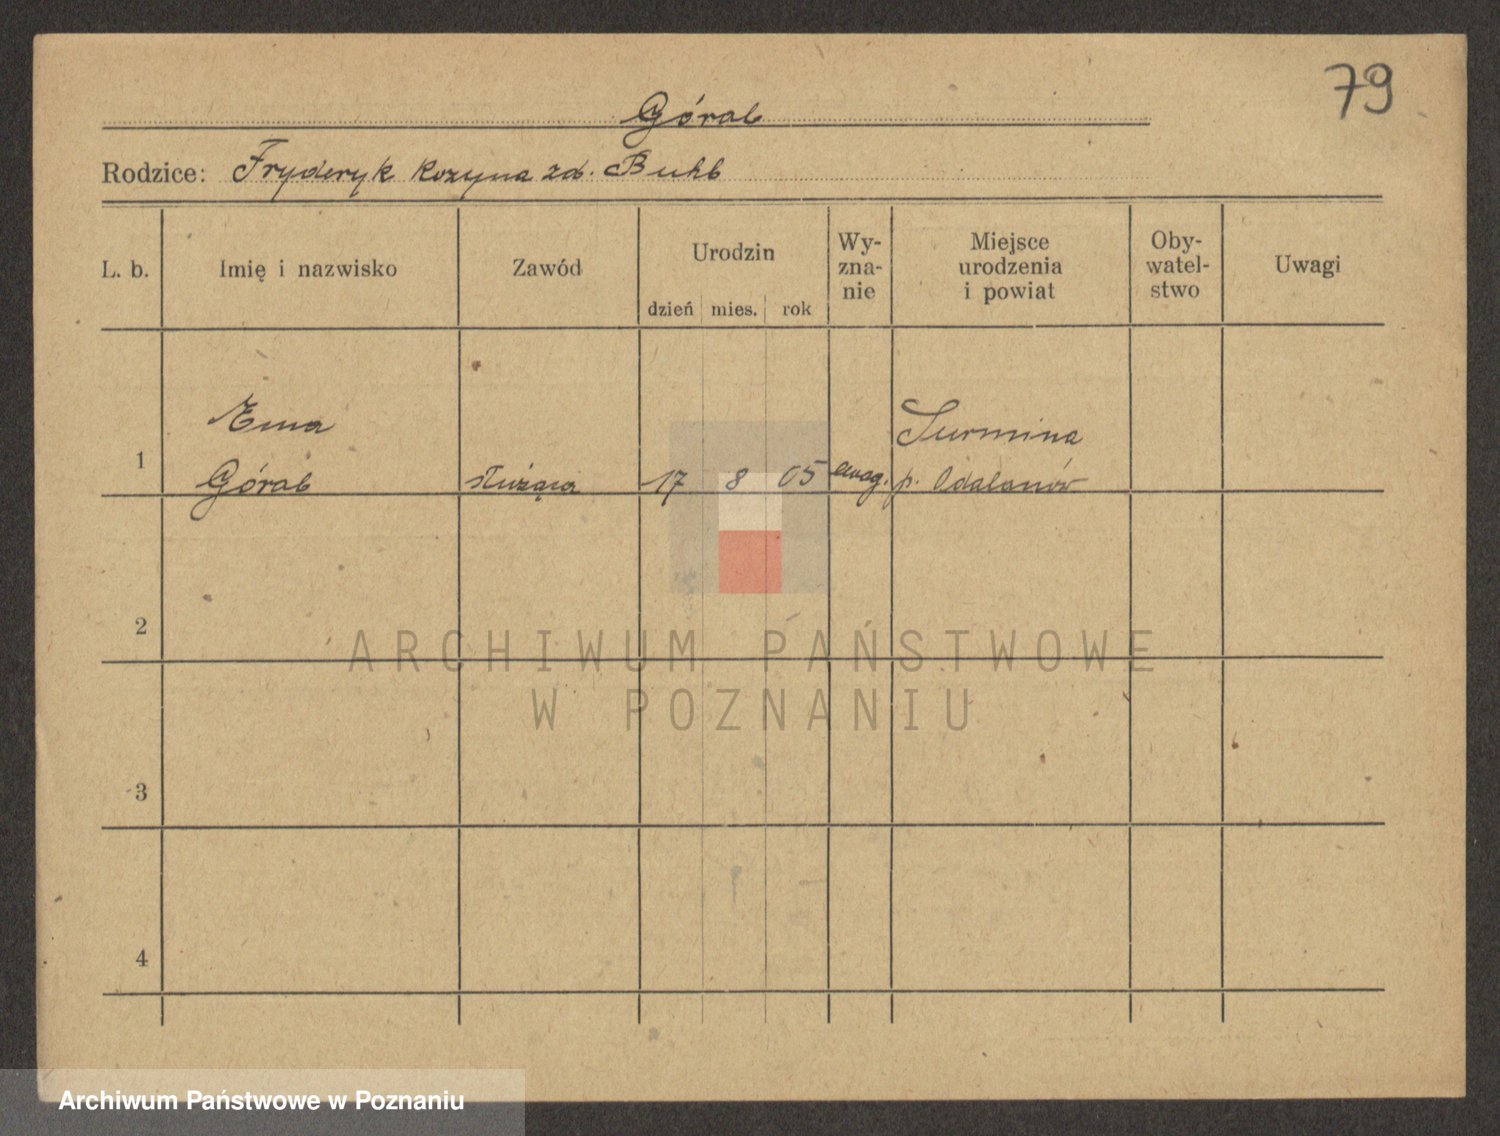 79
Góral
Rodzice: Fryderyk Rozyna zd. Buhl
L. b. Imię i nazwisko Zawód Urodzin dzień mies. rok Wy-
zna-
nie Miejsce
urodzenia
i powiat Oby-
watel-
stwo Uwagi
Ema Surmina
1 Góral służąca 17 8 05 ewag. p. Odalanów
2
3
4
ARCHIWUM PAŃSTWOWE
W POZNANIU
Archiwum Państwowe w Poznaniu